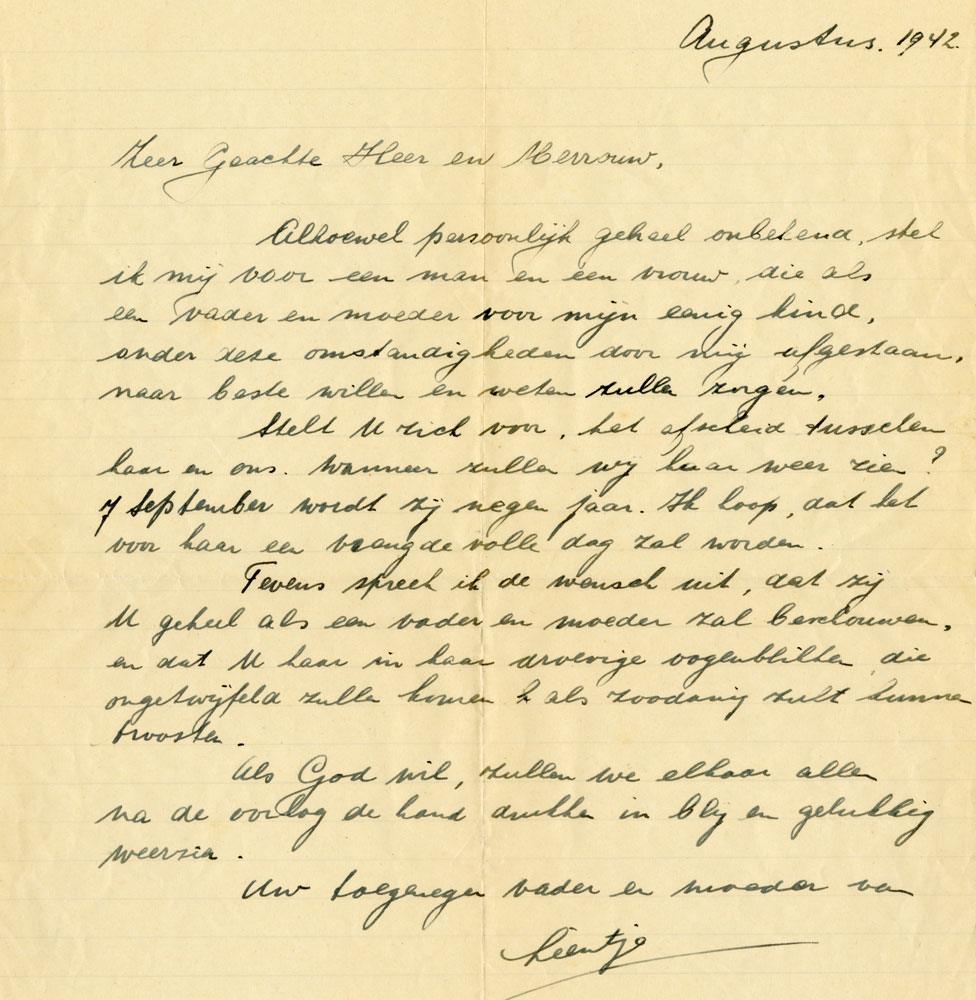 Augustus. 1942.
Zeer Geachte Heer en Mevrouw,
Alhoewel persoonlijk geheel onbekend, stel
ik mij voor een man en een vrouw, die als
een vader en moeder voor mijn eenig kind,
onder deze omstandigheden door mij afgestaan,
naar beste willen en weten zullen zorgen.
Stelt U zich voor, het afscheid tusschen
haar en ons. Wanneer zullen wij haar weer zien?
7 September wordt zij negen jaar. Ik hoop, dat het
voor haar een vreugdevolle dag zal worden.
Tevens spreek ik de wensch uit, dat zij
U geheel als een vader en moeder zal beschouwen,
en dat U haar in haar droevige oogenblikken die
ongetwijfeld zullen komen als zoodanig zult kunnen
troosten.
Als God wil, zullen we elkaar allen
na de oorlog de hand drukken in blij en gelukkig
weerzien.
Uw toegenegen vader en moeder van
Leentje